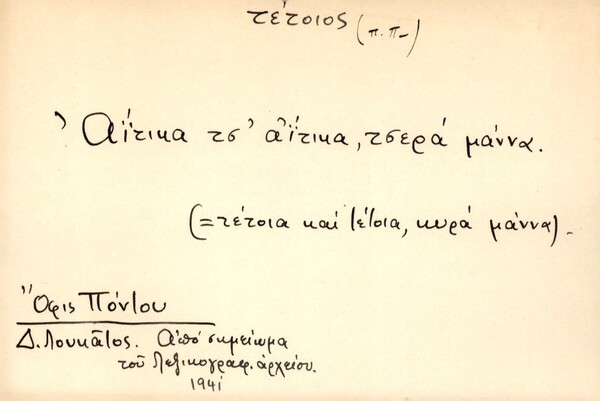 τέτοιος (π.π-)
Ἀΐτικα τσ' ἀΐτικα, τσερά μάννα.
(=τέτοια καί τέτοια, κυρά μάννα).
Ὄφις Πόντου
Δ. Λουκᾶτος. Ἀπό σημείωμα
τοῦ Λεξικογραφ. ἀρχείου.
1941